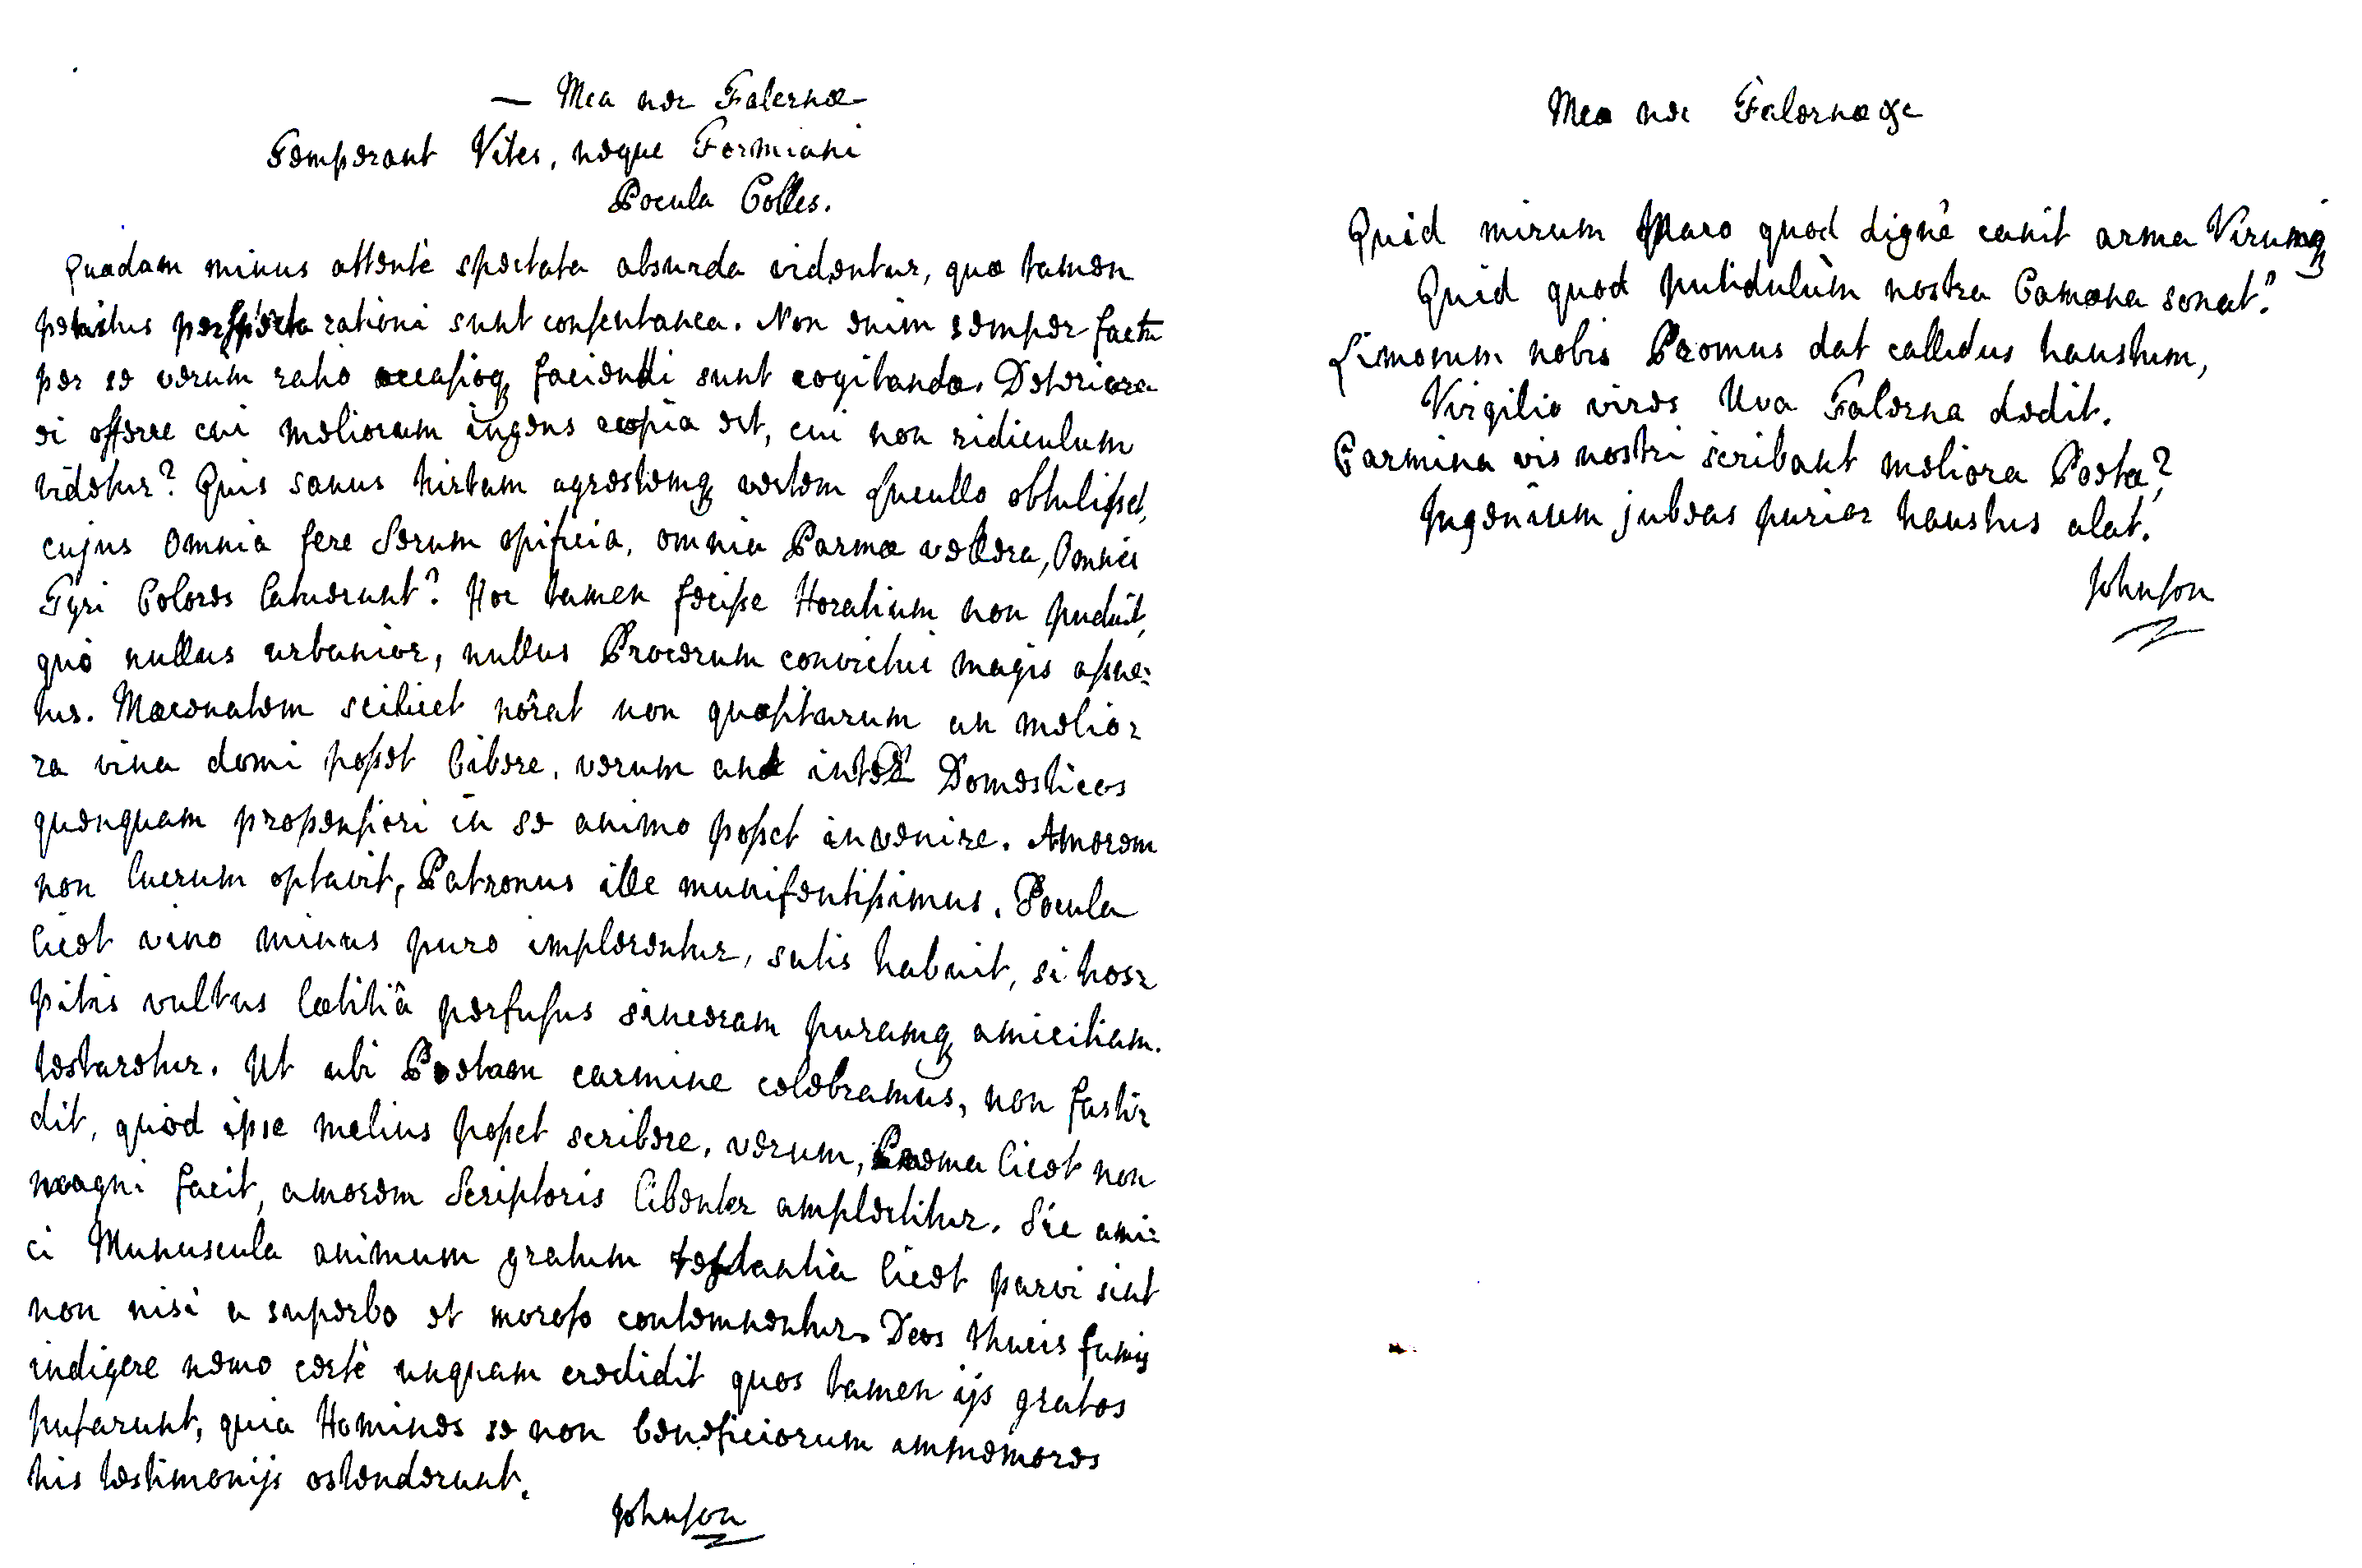 — Mea nec Falernæ
Temperant Vites, neque Formiani
Pocula Colles.
Quædam minus attentè spectata absurda videntur, quæ tamen
penitus perspecta rationi sunt consentanea. Non enim semper facta
per se verùm ratio occasioq faciendi sunt cogitanda. Deteriora
ei offerre cui meliorum ingens copia est, cui non ridiculum
videtur? Quis sanus hirtam agrestemq vestem Lucullo obtulisset,
cujus omnia fere Serum opificia, omnia Parmæ vellera, Omnes
Tyri Colores latuerunt? Hoc tamen fecisse Horatium non puduit,
quo nullus urbanior, nullus Procerum convictui magis assue:
tus. Mæcenatem scilicet nôrat non quæsiturum an melio:
ra vina domi posset bibere, verum an inter Domesticos
quenquam propensiori in se animo posset invenire. Amorem
non lucrum optavit, Patronus ille munifentissimus. Pocula
licet vino minus puro implerentur, satis habuit, si hos:
pitis vultus lætitiâ perfusus sinceram puramq amicitiam.
testaretur. Ut ubi Poetam carmine celebramus, non fasti:
dit, quòd ipse melius posset scribere, verum, Poema licet non
magni facit, amorem Scriptoris libenter amplectitur. Sic ami:
ci Munuscula animum gratum testantia licet parvi sint
non nisi a superbo et moroso contemnentur. Deos thuris fumis
indigere nemo certè unquam credidit quos tamen ijs gratos
putarunt, quia Homines se non beneficiorum immemores
his testimonijs ostenderunt.
Johnson
Mea nec Falernæ &c
Quid mirum Maro quod dignè canit arma Virumq
Quid quod putidulùm nostra Camæna sonat?
Limosum nobis Promus dat callidus haustum,
Virgilio vires Uva Falerna dedit.
Carmina vis nostri scribant meliora Poetæ?
Ingenium jubeas purior haustus alat.
Johnson